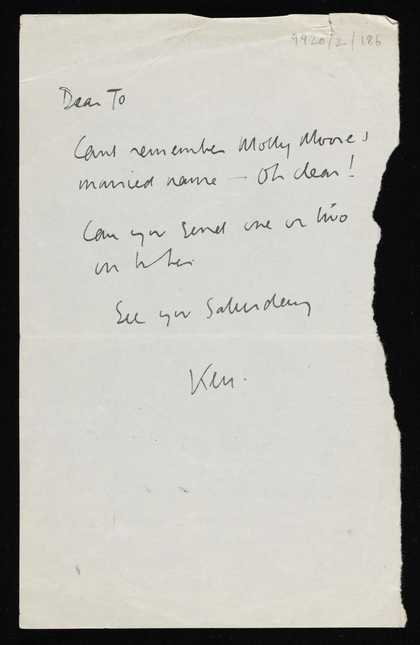 9920/2/186
Dear To
Cant remember Molly Moore's
married name — Oh dear!
Can you send one or two
on to her.
See you Saturday
Ken.